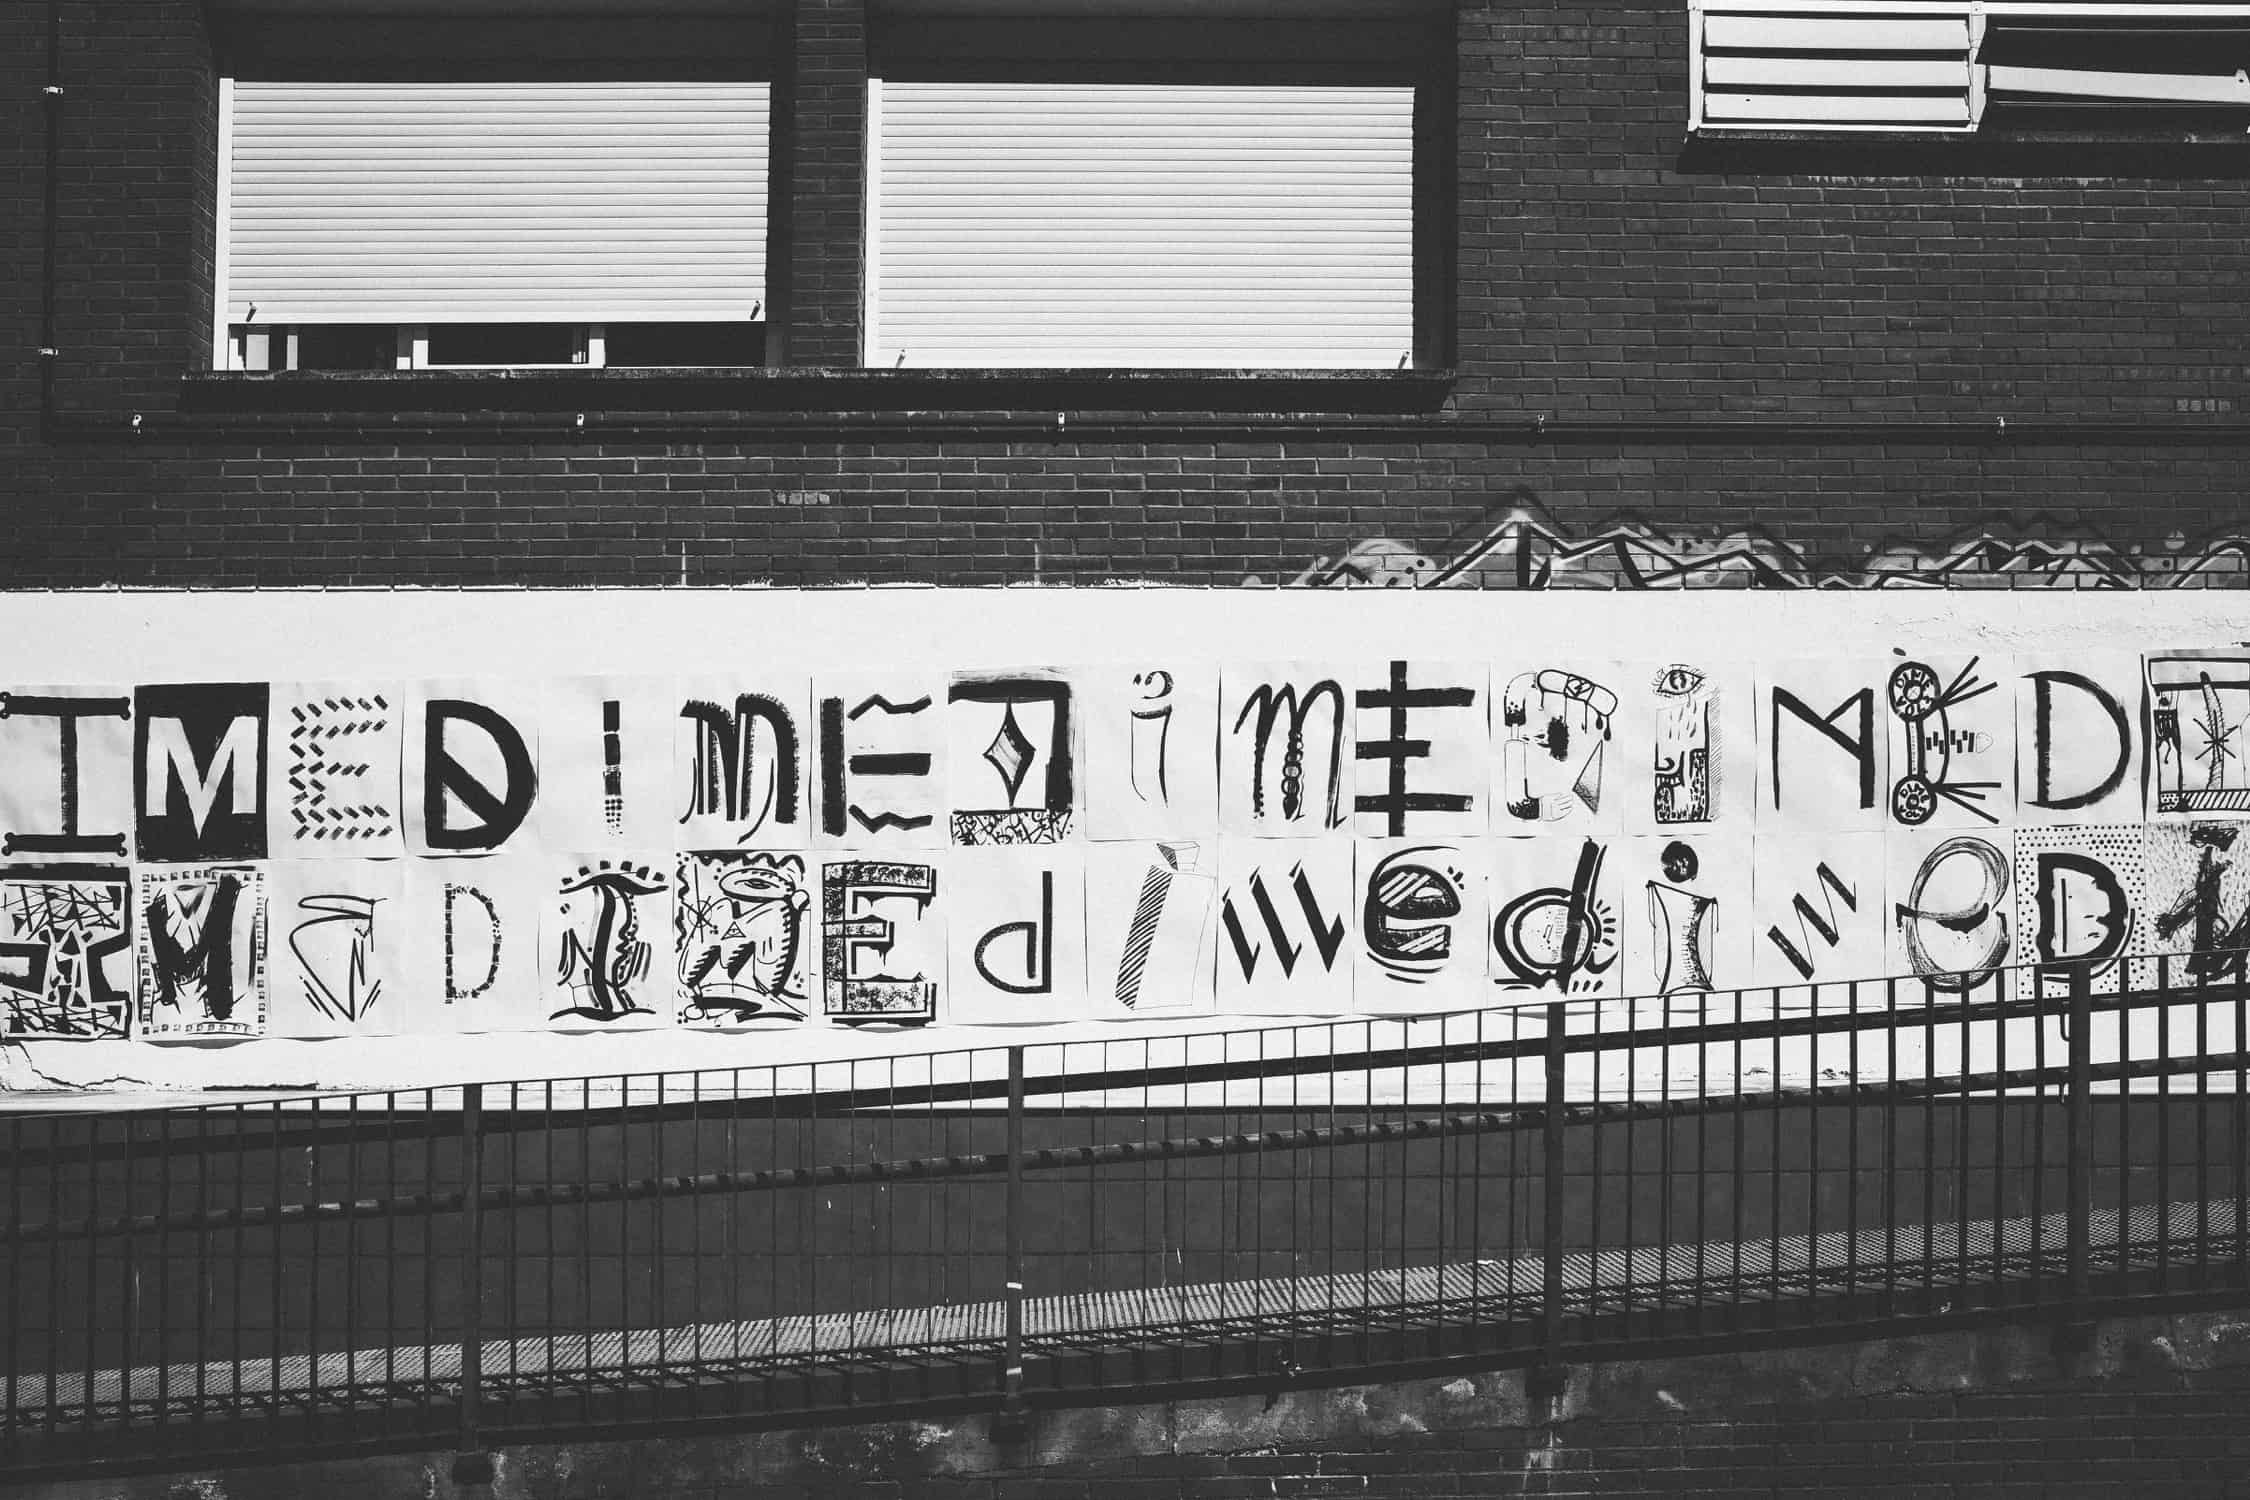 IMEDIMEDimEDiMEDI
IMEDIMEdimedimeDI